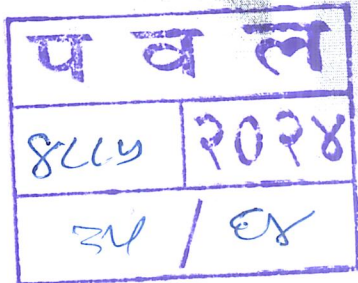 प व ल
४८८५ २०२४
३५ / ९४